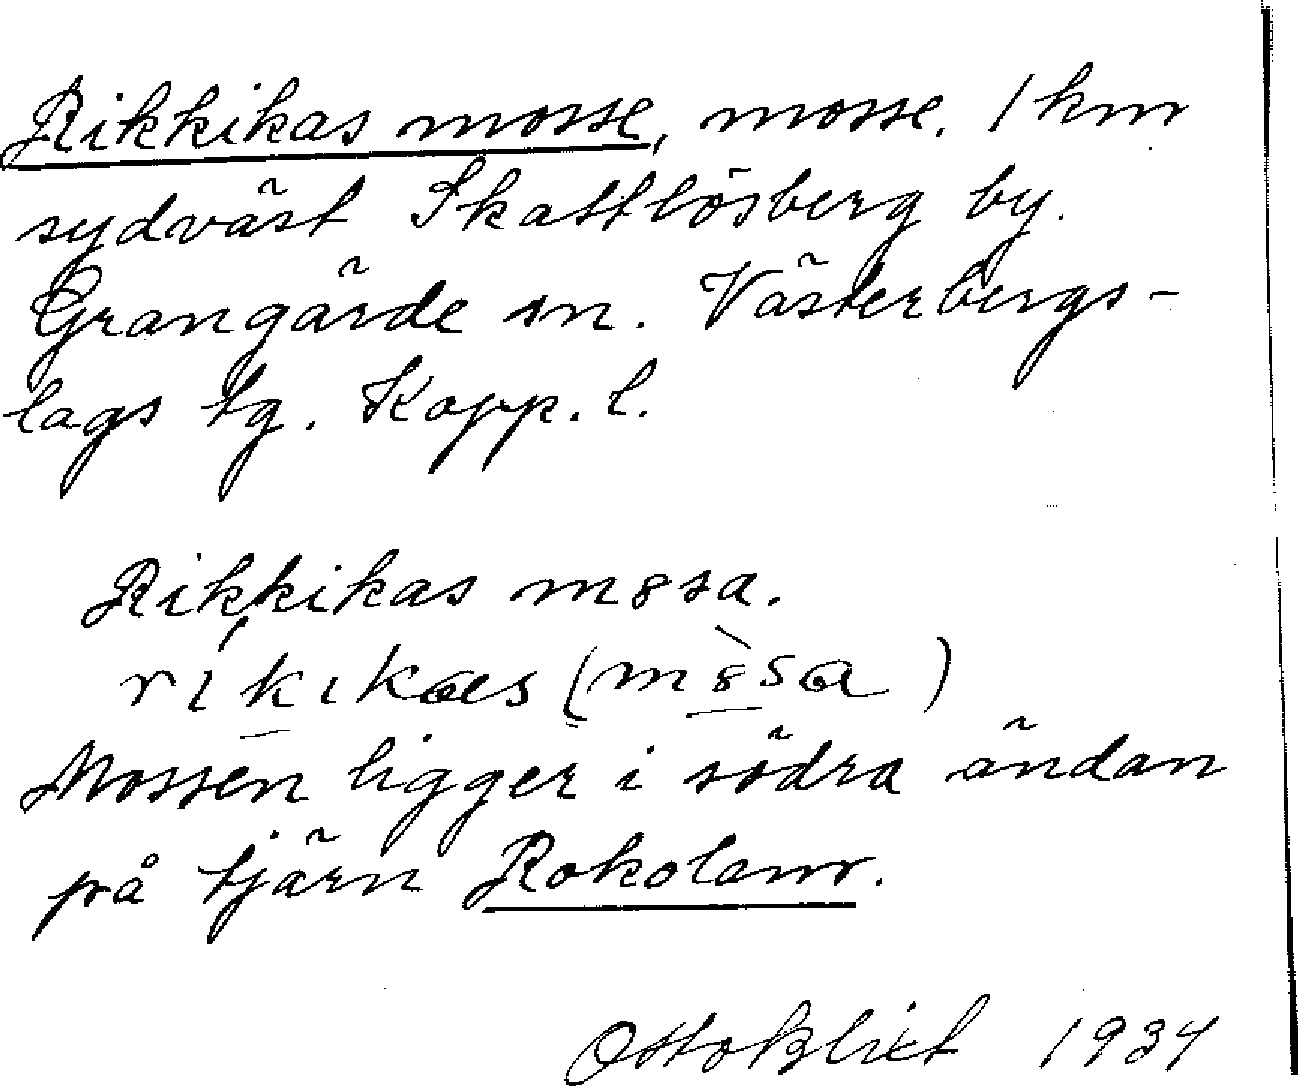 Rikkikas mosse, mosse. 1 km
sydväst Skattlösberg by.
Grangärde sn. Västerbergs-
lags tg. Kopp. l.
Rikkikas m8sa.
rikikas (m8sa)
Mossen ligger i södra ändan
på tjärn Rokolam.
Otto Blixt 1934